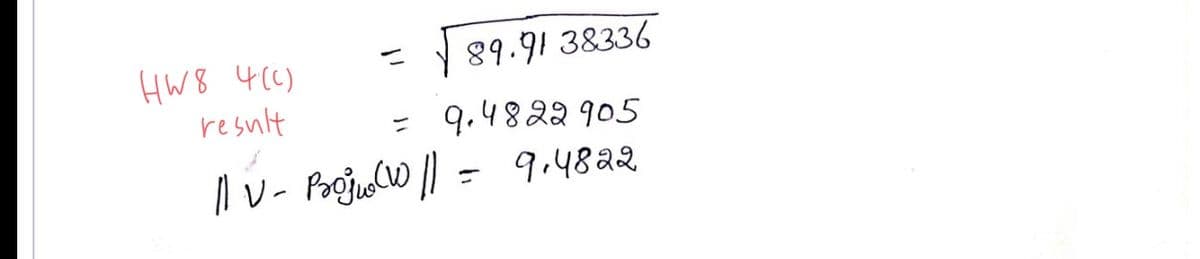 = √89.9138336
HW8 4(c)
result
= 9.4822905
|| V - Proj_w(W) || = 9.4822